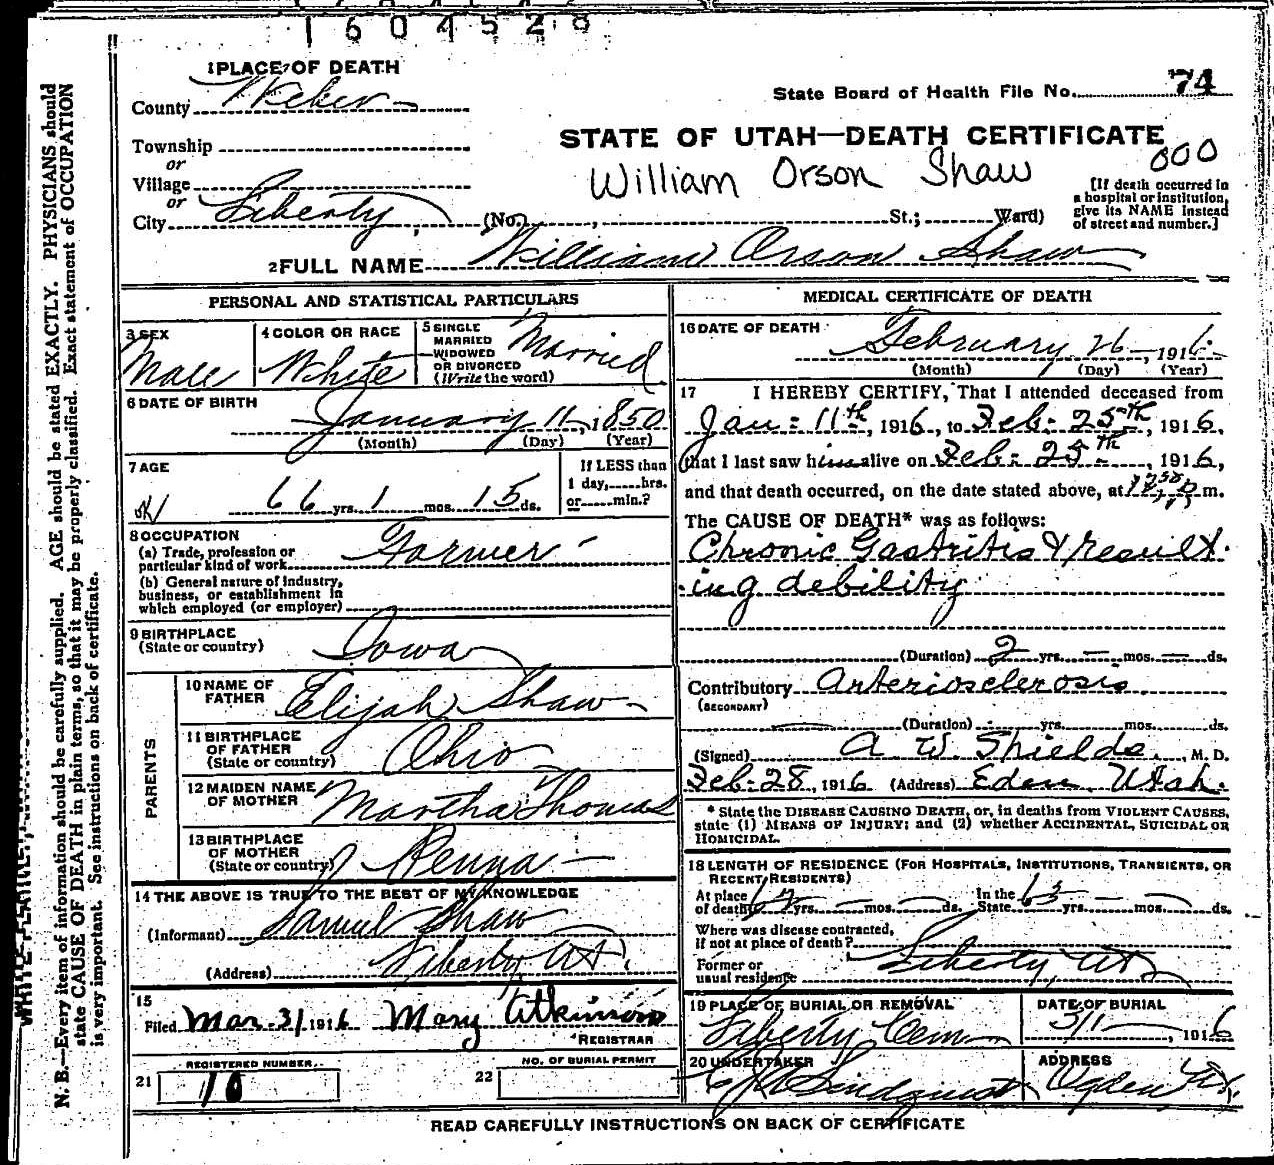 1604528
1 PLACE OF DEATH
County Weber
State Board of Health File No. 74
Township
or
Village
or
City Liberty
STATE OF UTAH—DEATH CERTIFICATE
William Orson Shaw 000
(No. , St.; Ward)
[If death occurred in
a hospital or institution,
give its NAME instead
of street and number.]
2 FULL NAME William Orson Shaw
PERSONAL AND STATISTICAL PARTICULARS
3 SEX
Male
4 COLOR OR RACE
White
5 SINGLE
MARRIED
WIDOWED
OR DIVORCED
(Write the word)
Married
6 DATE OF BIRTH
January 11, 1850
(Month) (Day) (Year)
7 AGE
66 yrs. 1 mos. 15 ds.
If LESS than
1 day, hrs.
or min.?
8 OCCUPATION
(a) Trade, profession or
particular kind of work Farmer
(b) General nature of Industry,
business, or establishment in
which employed (or employer)
9 BIRTHPLACE
(State or country) Iowa
PARENTS
10 NAME OF
FATHER Elijah Shaw
11 BIRTHPLACE
OF FATHER
(State or country) Ohio
12 MAIDEN NAME
OF MOTHER Martha Thomas
13 BIRTHPLACE
OF MOTHER
(State or country) Penna
14 THE ABOVE IS TRUE TO THE BEST OF MY KNOWLEDGE
(Informant) Samuel Shaw
(Address) Liberty Ut.
15
Filed Mar. 3/ 1916 Mary Atkinson
REGISTRAR
REGISTERED NUMBER
21 10
NO. OF BURIAL PERMIT
22
MEDICAL CERTIFICATE OF DEATH
16 DATE OF DEATH
February 26, 1916
(Month) (Day) (Year)
17 I HEREBY CERTIFY, That I attended deceased from
Jan: 11th, 1916, to Feb: 25th, 1916,
that I last saw him alive on Feb: 25th, 1916,
and that death occurred, on the date stated above, at m.
The CAUSE OF DEATH* was as follows:
Chronic Gastritis & result
ing debility
(Duration) 2 yrs. — mos. — ds.
Contributory Arteriosclerosis
(SECONDARY)
(Duration) yrs. mos. ds.
(Signed) A W Shields, M. D.
Feb. 28, 1916 (Address) Eden, Utah.
* State the DISEASE CAUSING DEATH, or, in deaths from VIOLENT CAUSES,
state (1) MEANS OF INJURY; and (2) whether ACCIDENTAL, SUICIDAL OR
HOMICIDAL.
18 LENGTH OF RESIDENCE (FOR HOSPITALS, INSTITUTIONS, TRANSIENTS, OR
RECENT RESIDENTS)
At place
of death yrs. — mos. — ds.
In the
State yrs. — mos. — ds.
Where was disease contracted,
if not at place of death?
Former or
usual residence Liberty Ut
19 PLACE OF BURIAL OR REMOVAL
Liberty Cem
DATE OF BURIAL
3/1 1916
20 UNDERTAKER
Lindquist
ADDRESS
Ogden Ut.
READ CAREFULLY INSTRUCTIONS ON BACK OF CERTIFICATE
N. B.—Every item of information should be carefully supplied. AGE should be stated EXACTLY. PHYSICIANS should
state CAUSE OF DEATH in plain terms, so that it may be properly classified. Exact statement of OCCUPATION
is very important. See instructions on back of certificate.